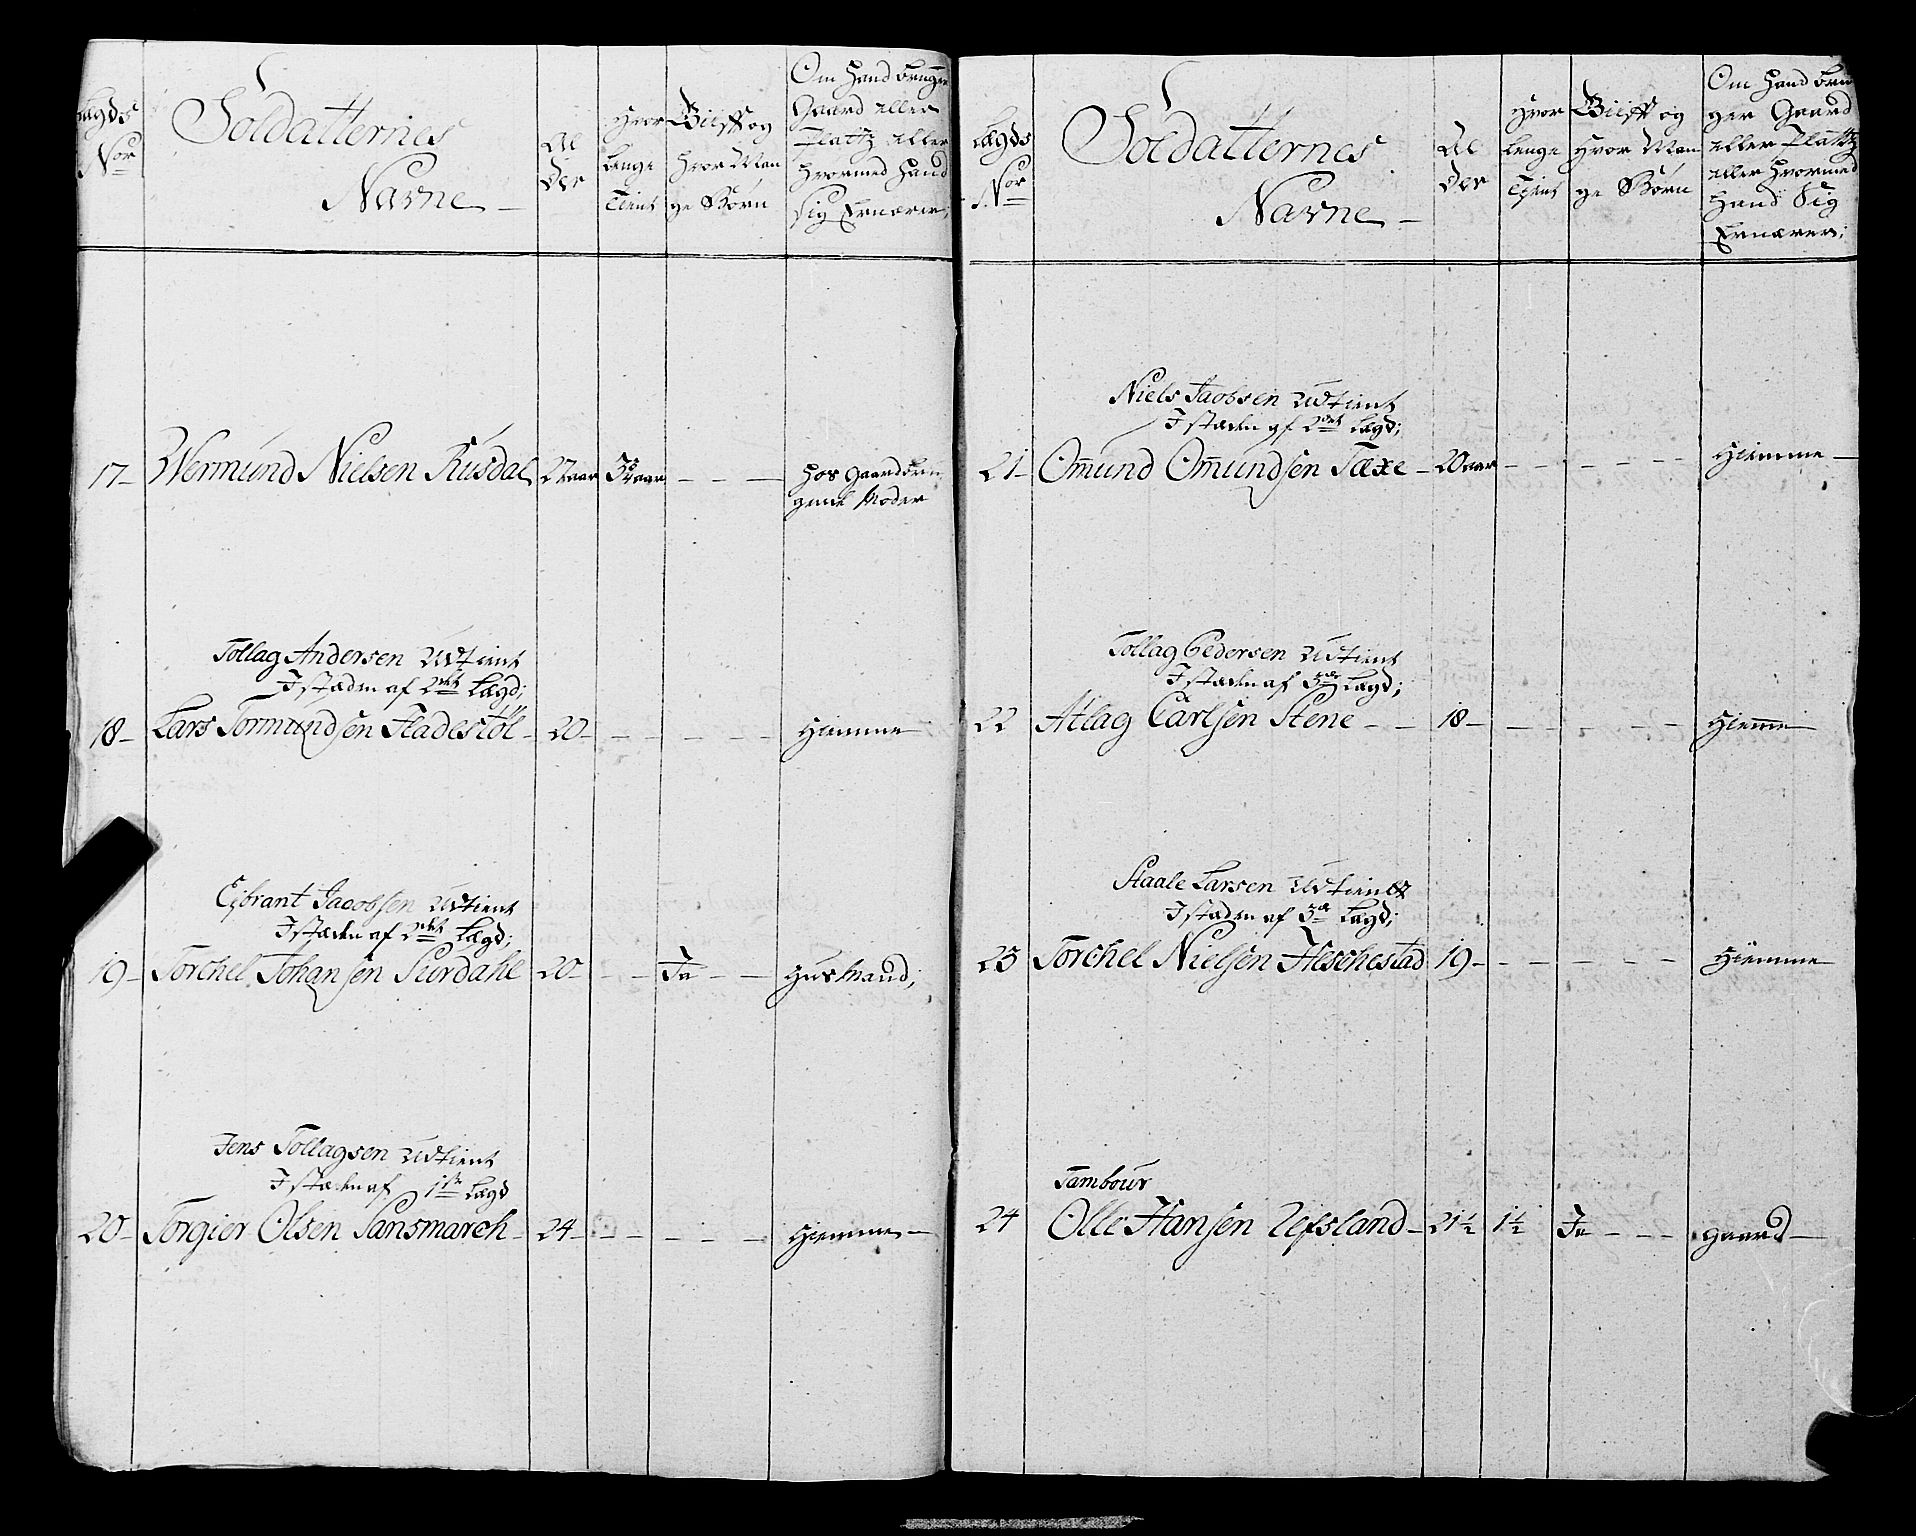 Lægds
No͞r
Soldatternes
Navne
Al
der
Hvor
Lenge
Tient
Giift og
Hvor Man
ge Børn
Om Hand bruger
Gaard eller
Plattz eller
Hvormed Hand
Sig Ernærer,
17 Wermund Nielsen Rusdal 27 aar 3 aar - - - Hos Gaardbru
gende Moder
Tollag Andersen Udtient
I stæden af 2det Lægd;
18 Lars Tormundsen Fladestøl 20 - - - - Hiemme
Ejbrant Jacobsen Udtient
I stæden af 2det Lægd;
19 Torchel Johansen Surdahl 20 - - Ja - - Husmand;
Jens Tollagsen Udtient
I stæden af 1ste Lægd
20 Torgier Olsen Sansmarch 24 - - - - - Hiemme
Lægds
No͞r
Soldatternes
Navne
Al
der
Hvor
lenge
Tient
Giift og
Hvor Man
ge Børn
Om Hand bru
ger Gaard
eller Plattz
eller Hvormed
Hand Sig
Ernærer;
Niels Jacobsen Udtient
I stæden af 2det Lægd;
21 Om̅und Om̅undsen Taxe 20 aar - - - - - Hiemme
Tollag Pedersen Udtient
I stæden af 3de Lægd;
22 Atlag Carlsen Stene 18 - - - - Hiem̅e
Staale Larsen Udtient
I stæden af 3de Lægd;
23 Torchel Nielsen Heschestad 19 - - - - - Hiemme
Tambour
24 Olle Hansen Refsland 21½ 1½ Ja - - - gaard